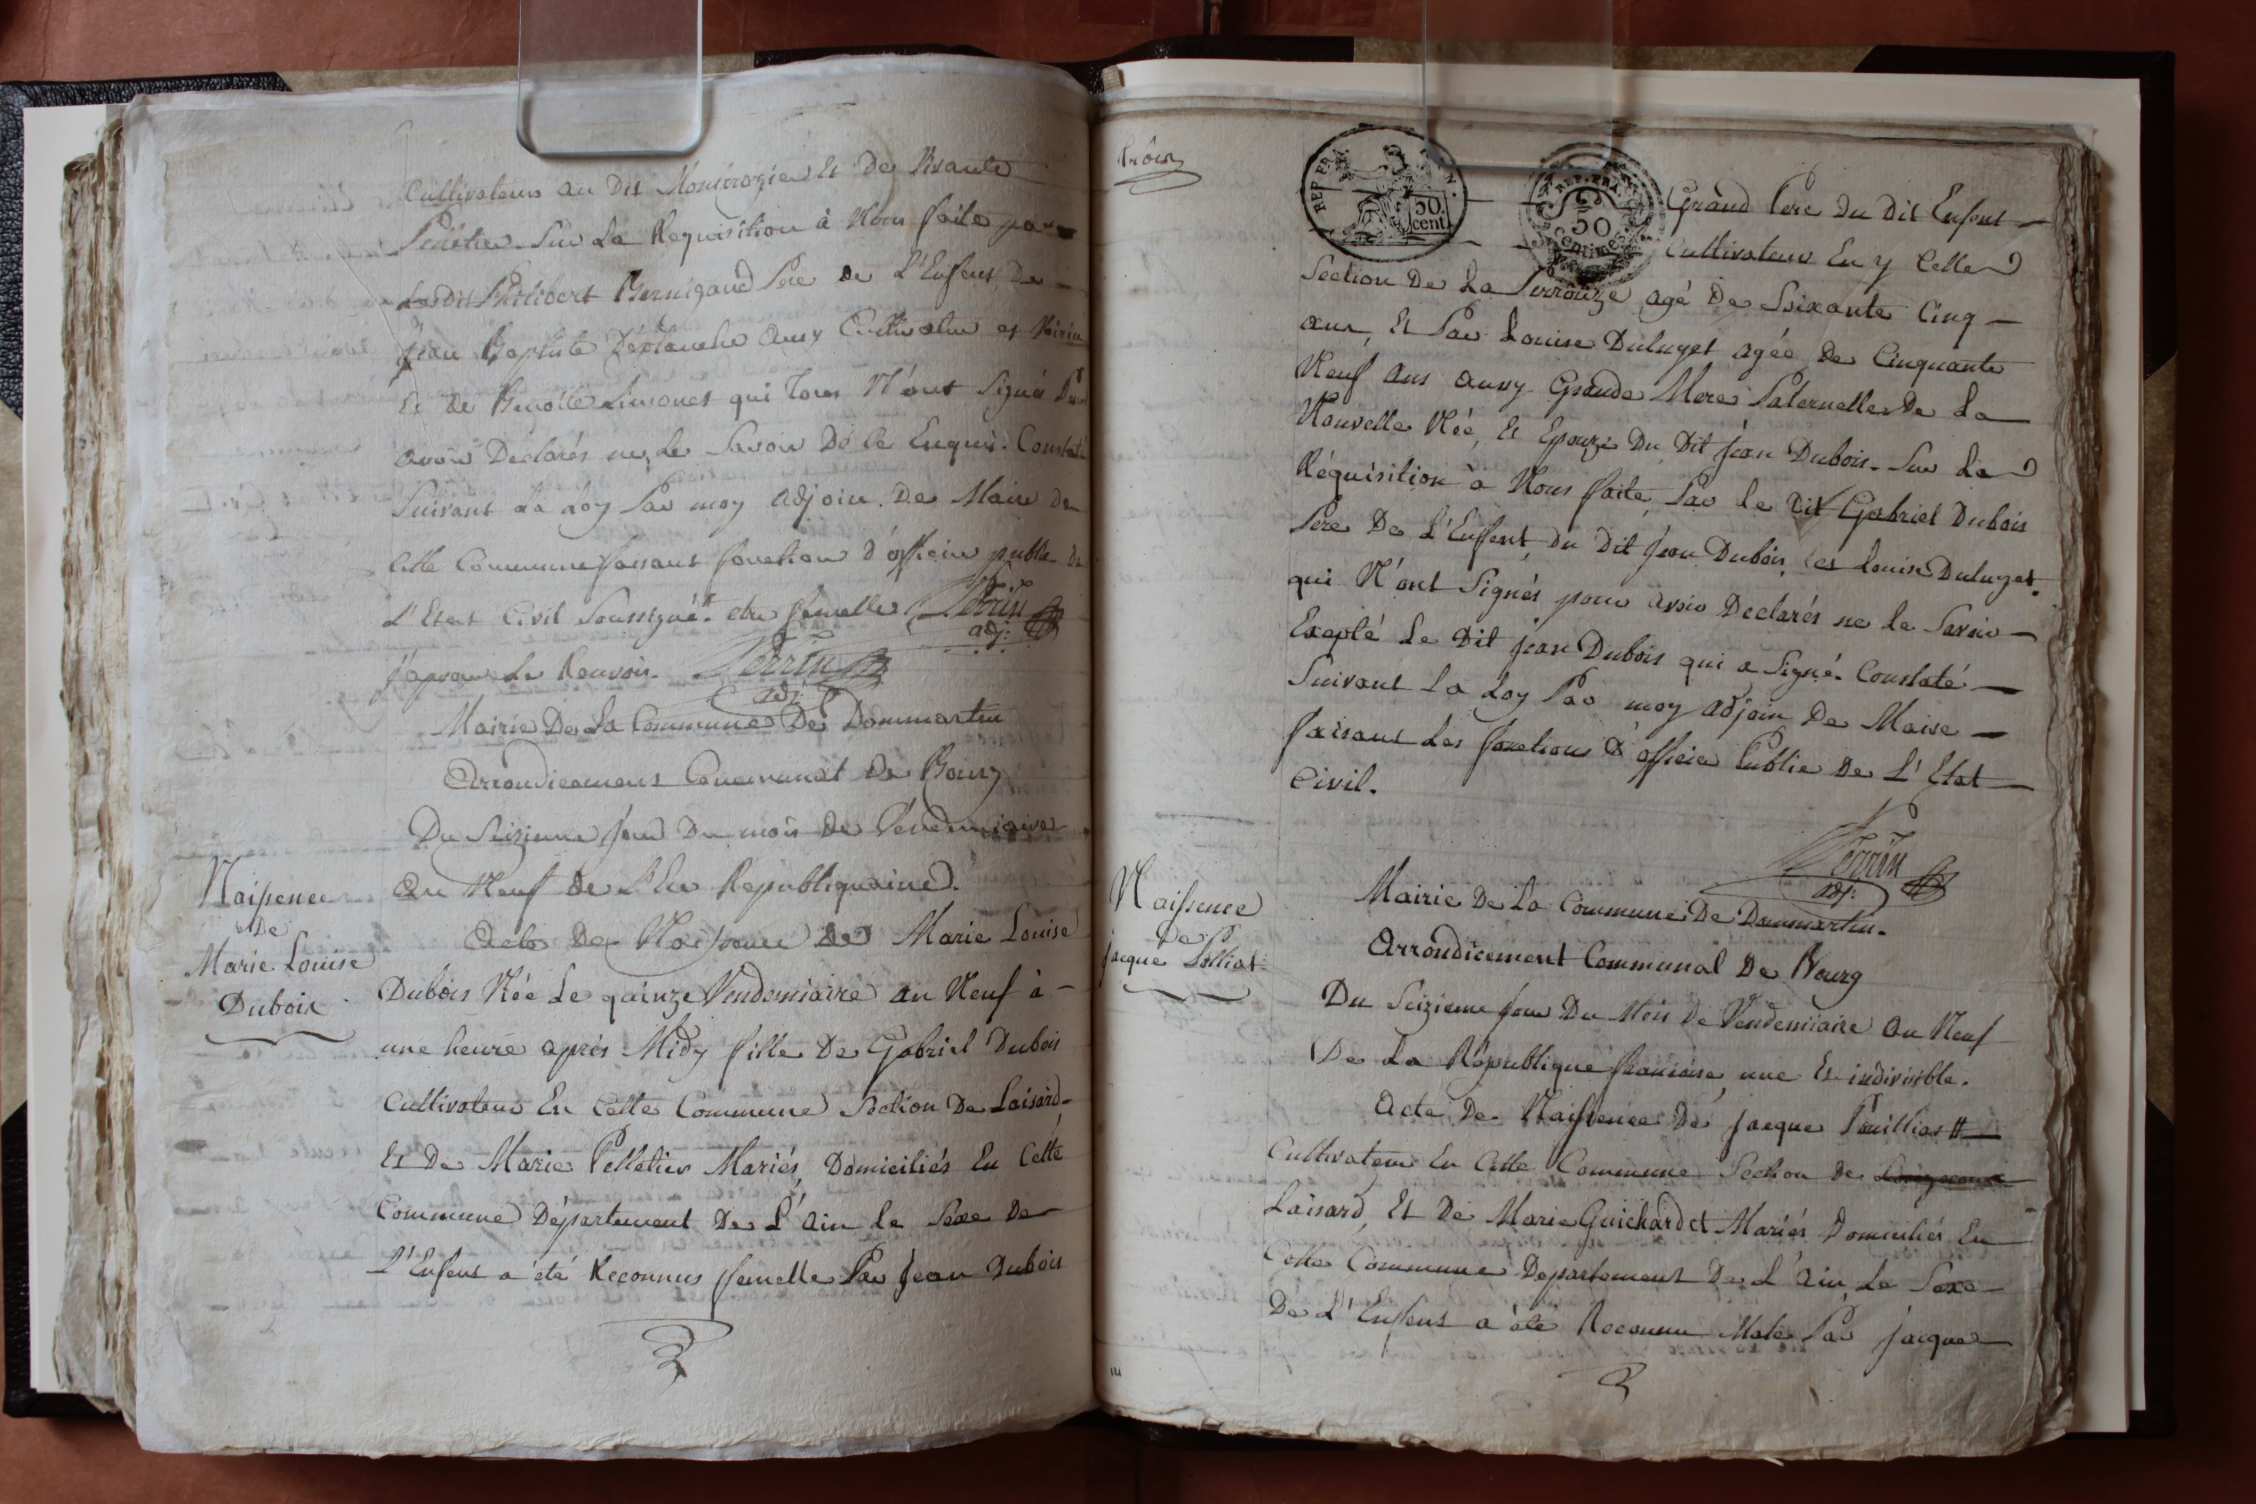 Cultivateurs au Dit Et De
Sur La Requisition à Nous faite par
Ledit Philibert Bernigaud Pere De L'Enfent, De
Jean Baptiste aussy Cultivateur et
Et De Benoite Simonet qui Tous N'ont Signés
avoir Déclarés ne le Savoir De ce Enquis. Constaté
Suivant La Loy Par moy adjoin De Maire De
Cette Commune faisant fonction d'officier public De
L'Etat Civil Soussigné. femelle Perrin
adj.
J'aprouve Le Renvoie. Perrin
adj.
Mairie De La Commune De Dommartin
Arrondicement Communal De Bourg
Du Seizieme Jour Du mois De Vendemiaire
An Neuf De L'Ere Republiquaine.
Naissence
De
Marie Louise
Dubois
Acte De Naissence De Marie Louise
Dubois Née Le quinze Vendemiaire an Neuf à -
une heure après Midy fille De Gabriel Dubois
Cultivateur En Cette Commune Section De Loisard -
Et De Marie Pelletier Mariés, Domiciliés En Cette
Commune Département De L'ain Le Sexe De
L'Enfent a été Reconnus femelle Par Jean Dubois
REP. FRA.
50
cent
REP. FRA.
50
Centimes
Grand Pere Du Dit Enfent -
Cultivateur En y Celle
Section De La Perrouze agé De Soixante Cinq -
ans, Et Par Louise Duluyet agée De Cinquante
Neuf ans aussy Grande Mere Paternelle De La
Nouvelle Née, Et Epouze Du Dit Jean Dubois. Sur La
Réquisition à Nous faite, Par le Dit Gabriel Dubois
Pere De L'Enfent, du Dit Jean Dubois, et Louise Duluyet.
qui N'ont Signés pour avoir Declarés ne le Savoir -
Exepté Le Dit Jean Dubois qui a Signé. Constaté -
Suivant La Loy Par moy adjoin De Maire -
faisant Les fonctions d'officier Public De L'Etat
Civil.
Perrin
adj.
Naissence
De
Jacque Polliat
Mairie De La Commune De Dommartin.
Arrondicement Communal De Bourg
Du Seizieme Jour Du Mois De Vendemiaire an Neuf
De La Republique francaise, une Et indivisible.
Acte De Naissence De Jacque
Cultivateur En Cette Commune Section De
Loisard, Et De Marie Guichardet Mariés Domiciliés En
Cette Commune Departement De L'ain, Le Sexe
De L'Enfent a été Reconnu Male Par Jacque